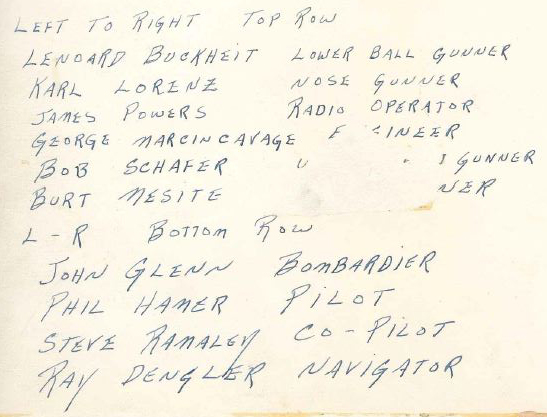 LEFT TO RIGHT TOP ROW
LENOARD BUCKHEIT LOWER BALL GUNNER
KARL LORENZ NOSE GUNNER
JAMES POWERS RADIO OPERATOR
GEORGE MARCINCAVAGE
BOB SCHAFER GUNNER
BURT MESITE
L-R BOTTOM ROW
JOHN GLENN BOMBARDIER
PHIL HAMER PILOT
STEVE RAMALEY CO-PILOT
RAY DENGLER NAVIGATOR